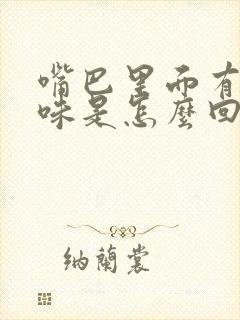 嘴巴里面有
味是怎麼回
纳蘭裳